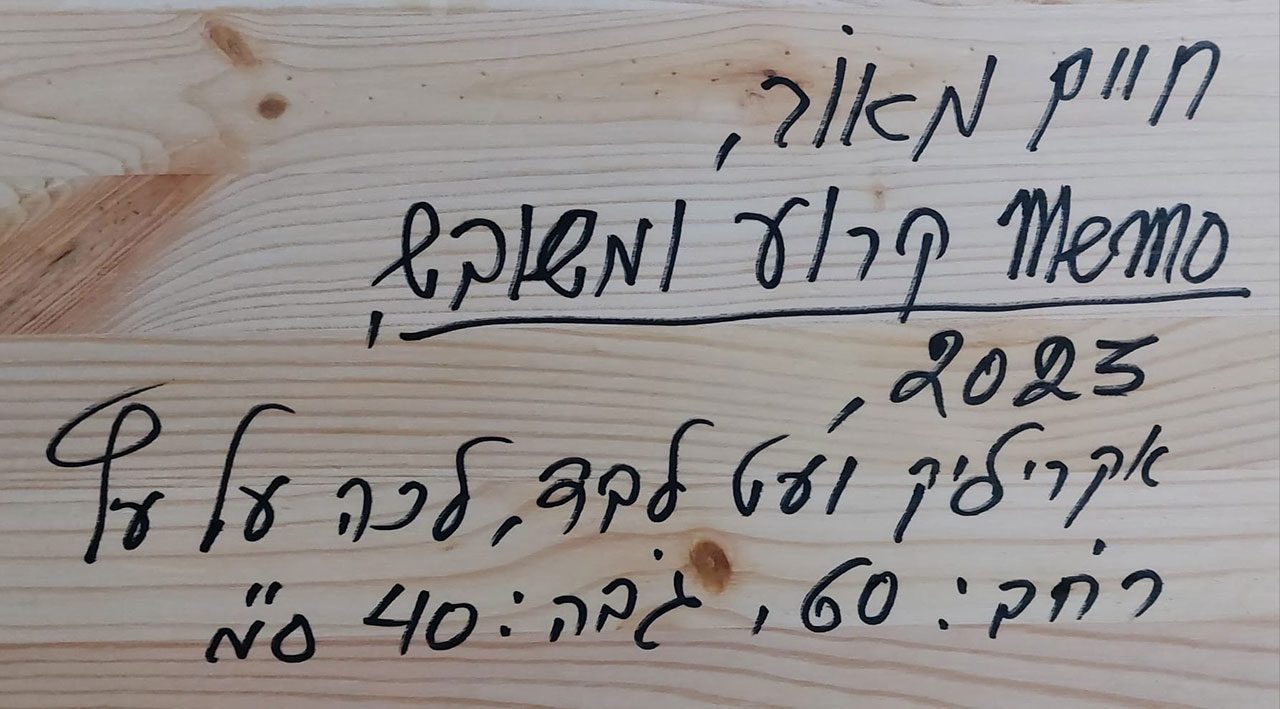 חיים מאור,
Memo קרוע ומשובש,
2023,
אקריליק ועט לבד, לכה על עץ
רחב: 60, גבה: 40 ס"מ